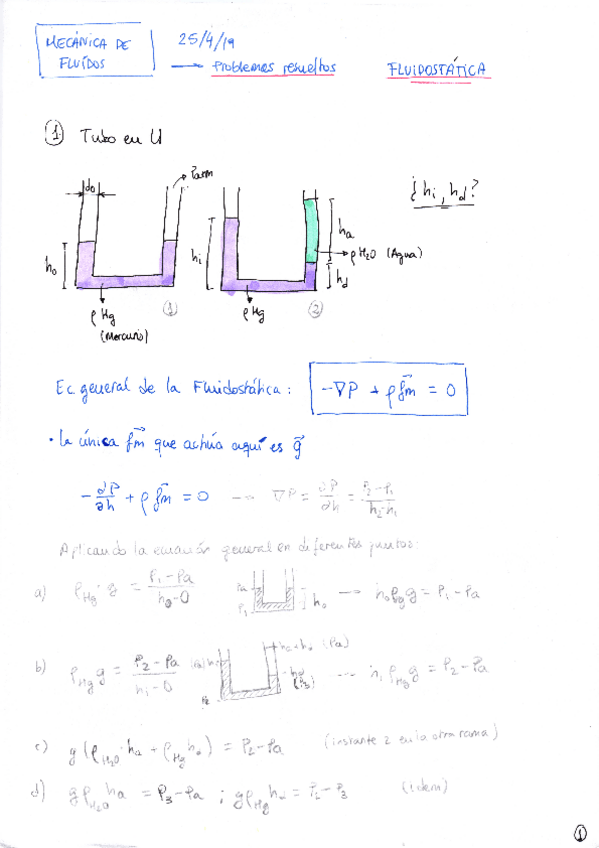 MECÁNICA DE FLUÍDOS
25/4/19
→ Problemas resueltos
FLUIDOSTÁTICA
① Tubo en U
do
Patm
ho
ρ Hg
(Mercurio)
①
hi
ρ Hg
ha
ρ H2O (Agua)
hd
②
¿hi, hd?
Ec general de la Fluidostática: -∇P + ρ f⃗m = 0
· La única f⃗m que actúa aquí es g⃗
-∂P/∂h + ρ f⃗m = 0 → ∇P = ∂P/∂h = (P2-P1)/(h2-h1)
Aplicando la ecuación general en diferentes puntos:
a) ρHg · g = (P1-Pa)/(h0-0)
Pa
P1
ho
→ h0 ρHg g = P1-Pa
b) ρHg g = (P2-Pa)/(hi-0)
(Pa) hi
P2
ha+hd (Pa)
hd
(P3)
→ hi ρHg g = P2-Pa
c) g(ρH2O · ha + ρHg hd) = P2-Pa (instante 2 en la otra rama)
d) g ρH2O ha = P3-Pa ; g ρHg hd = P2-P3 (idem)
①